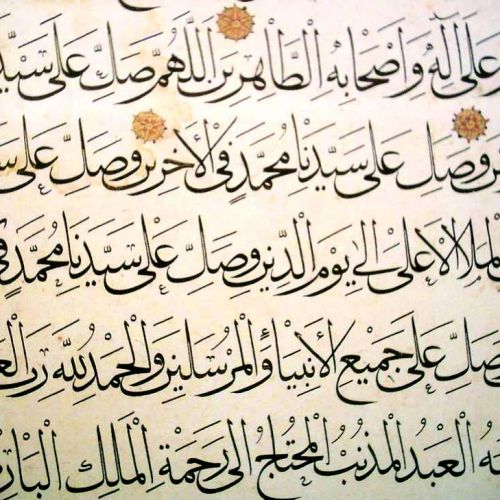 عَلَى آلِهِ وَاَصْحَابِهِ الطَّاهِرِينَ اللَّهُمَّ صَلِّ عَلَى سَيِّدِ
وَصَلِّ عَلَى سَيِّدِنَا مُحَمَّدٍ فِي الْاٰخِرِينَ وَصَلِّ عَلَى
الْمَلَاِ الْاَعْلَى اِلَى يَوْمِ الدِّينِ وَصَلِّ عَلَى سَيِّدِنَا مُحَمَّدٍ فِي
صَلِّ عَلَى جَمِيعِ الْاَنْبِيَاءِ وَالْمُرْسَلِينَ وَالْحَمْدُ لِلّٰهِ رَبِّ
الْعَبْدُ الْمُذْنِبُ الْمُحْتَاجُ اِلَى رَحْمَةِ الْمَلِكِ